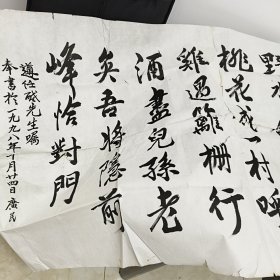 野水
桃花成一村喚
雞過籬柵行
酒盡兒孫老
矣吾將隱前
峰恰對門
遵任砥先生囑
奉書於一九九八年十月廿四日廣民